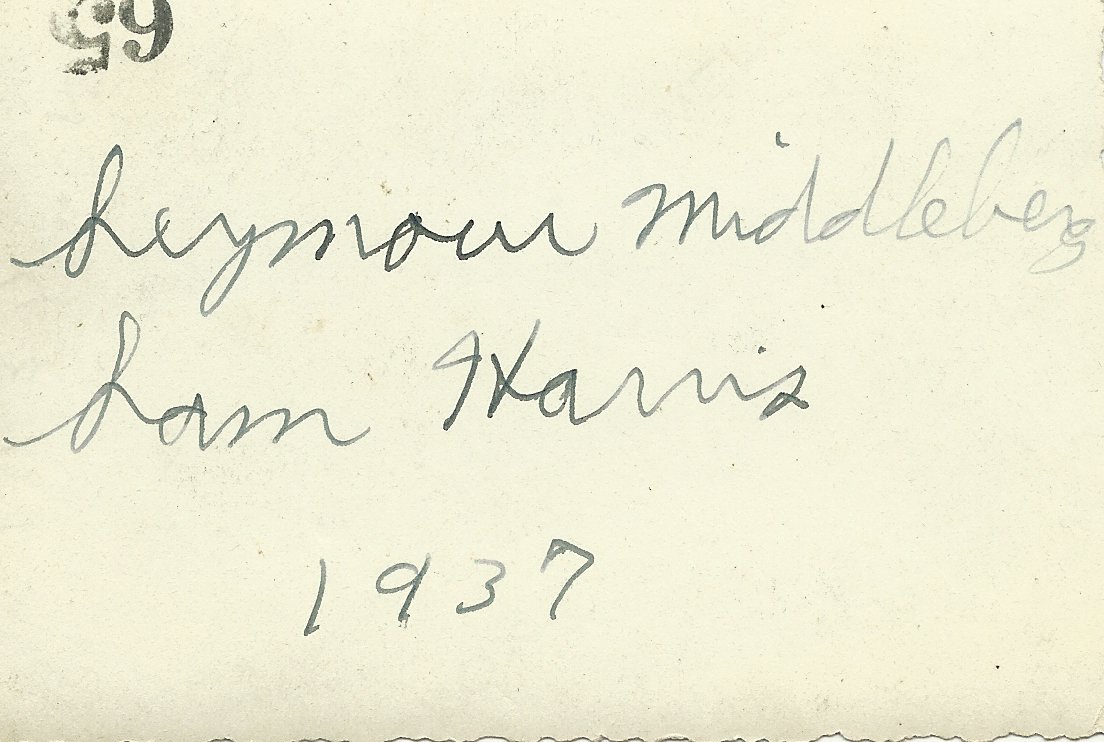 65
Seymour Middleberg
Sam Harris
1937